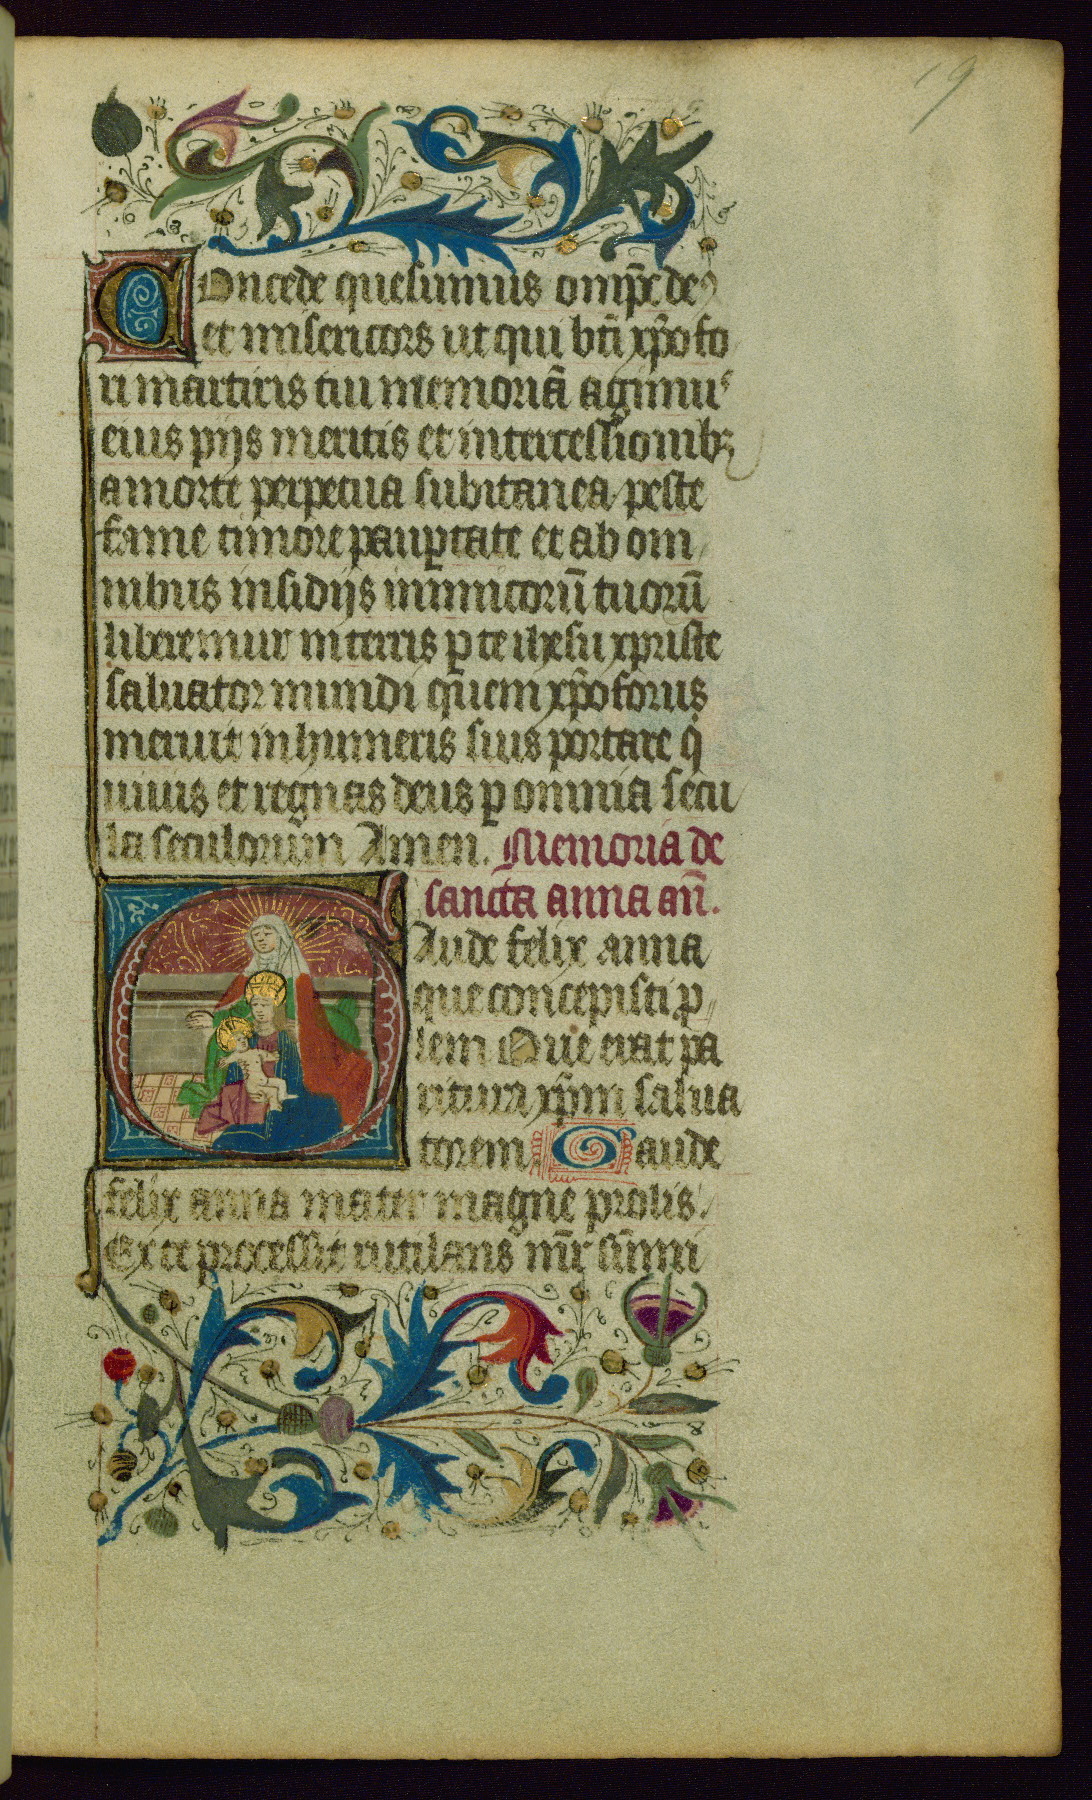 19
Concede quesumus omp̄s deꝰ
et misericors ut qui bt̄i xp̄ofo
ri martiris tui memoriā agimus
eius pijs meritis et intercessionibꝫ
a morte perpetua subitanea peste
fame timore paup̄tate et ab om
nibus insidijs inimicorū tuorū
liberemur in terris ꝑ te ihesu xpriste
saluator mundi quem xp̄oforus
meruit in humeris suis portare q̄
uiuis et regnas deus ꝑ omnia secu
la seculorum Amen. Memoria de
sancta anna an̄.
Gaude felix anna
que concepisti p̄
lem Que erat pa
ritura xp̄m salua
torem Gaude
felix anna mater magne prolis
Ex te processit rutilans mr̄ sūmi